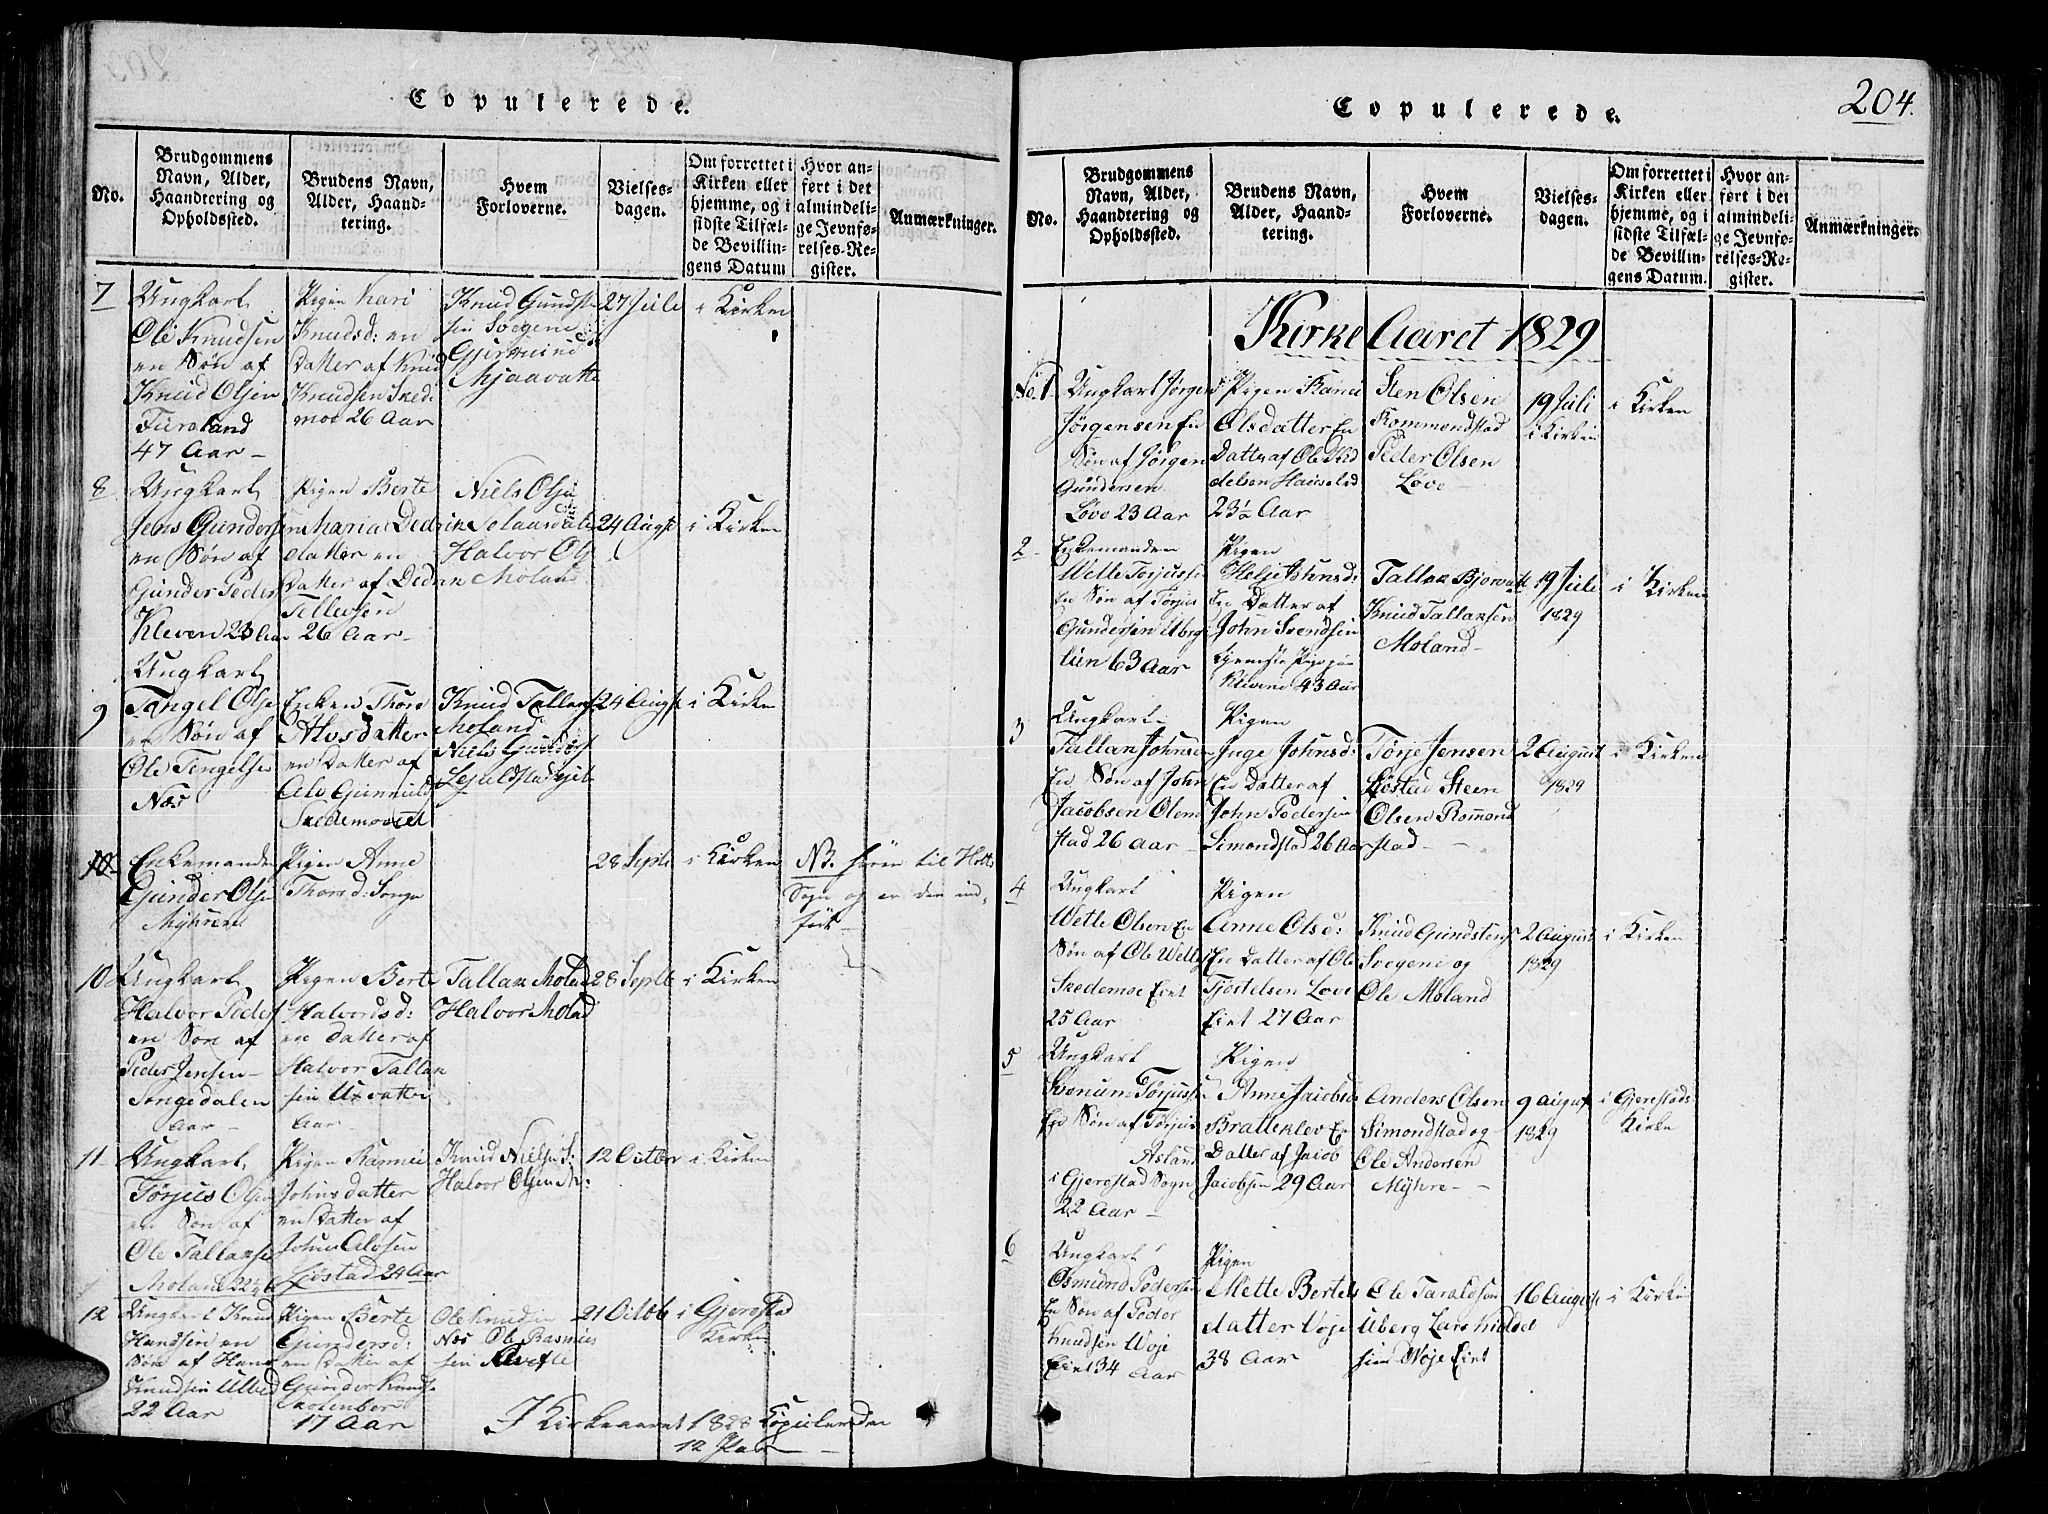 Copulerede.
No.
Brudgommens Navn, Alder, Haandtering og Opholdssted.
Brudens Navn, Alder, Haandtering.
Hvem Forloverne.
Vielsesdagen.
Om forrettet i Kirken eller hjemme, og i sidste Tilfælde Bevillingens Datum
Hvor anført i det almindelige Jevnførelses-Register.
Anmærkninger.
7
Ungkarl
Ole Knudsen
en Søn af
Knud Olsen
47 Aar
Pigen Kari
Knudsd: en
Datter af Knud
Knudsen Sked
moe 26 Aar
Knud Gundst
sen Svegene
27 Juli
i Kirken
8
Ungkarl
Jens Gunders
en Søn af
Gunder Peders
Kleven 23 Aar
Pigen Berte
Maria Dedrik
datter en
Datter af Dedrik
Tellefsen
26 Aar
Niels Olse
Halvor Ols
Moland
24 Augst
i Kirken
9
Ungkarl
Tengel Olse
en Søn af
Ole Tengelsen
Næs
Enken Thore
Alvsdatter
en Datter af
Alv Gunnulds
Skedemoeeet
Knud Tallaks
Moland
Niels Gunders
24 Augst
i Kirken
10
Enkemanden
Gunder Olsen
Myhrene
Pigen Anne
Thorsd: Songe
28 Septb
i Kirken
NB. hører til Holts
Sogn og er der ind
ført
10
Ungkarl
Halvor Peders
en Søn af
Peder Jensen
Songedalen
Aar
Pigen Berte
Halvordsd:
en Datter af
Halvor Tallak
sen Uxvatten
Aar
Tallak Molad
Halvor Molad
28 Septb
i Kirken
11
Ungkarl
Torjus Olsen
en Søn af
Ole Tallaksen
Moland 22½
Pigen Rasmei
Johnsdatter
en Datter af
John Alvsen
Løvstad 24 Aar
Knud Nielsen S:
Halvor Olsen M:
12 Octbr
i Kirken
12
Ungkarl Knud
Handsen en
Søn af Hans
Knudsen Ulbed
22 Aar
Pigen Berte
Gundersd:
en Datter af
Gunder Knuds
Espelandboe
17 Aar
Ole Knudsen
Næs Ole Rasmus
sen
21 Octb
i Gjerestad
Kirken
I Kirkeaaret 1828 Kopulereden
12 Par
Copulerede.
204.
No.
Brudgommens Navn, Alder, Haandtering og Opholdssted.
Brudens Navn, Alder, Haandtering.
Hvem Forloverne.
Vielsesdagen.
Om forrettet i Kirken eller hjemme, og i sidste Tilfælde Bevillingens Datum.
Hvor anført i det almindelige Jevnførelses-Register.
Anmærkninger.
Kirke Aaret 1829
No. 1
Ungkarl Jørgen
Jørgensen En
Søn af Jørgen
Gundersen
Løvo 23 Aar
Pigen Karen
Olsdatter En
Datter af Ole Ked
delsen Hauseled
23½ Aar
Sten Olsen
Rommendstad
Peder Olsen
Løvo
19 Juli
i Kirken
i Kirken
2
Enkemanden
Wette Torjussen
En Søn af Torjus
Gundersen Uberg
lien 63 Aar
Pigen
Helje Johnsd:
En Datter af
John Svendsen
tjeneste Pige paa
Klevene 43 Aar
Tallak Bjorvatt
Knud Tallaksen
Moland
19 Juli
1829
i Kirken
3
Ungkarl
Tallak Johnsen
En Søn af John
Jacobsen Olim
stad 26 Aar
Pigen
Inge Johnsd:
En Datter af
John Pedersen
Simondstad 26 Aar
Torje Jensen
Løvstad Steen
Olsen Rommend
stad
2 August
1829
i Kirken
4
Ungkarl
Wetle Olsen En
Søn af Ole Wetles
Skedemoe Eiet
25 Aar
Pigen
Anne Olsd:
En Datter af Ole
Tjøstelsen Løve
Eiet 27 Aar
Knud Gundstens
Svegene og
Ole Moland
2 August
1829
i Kirken
5
Ungkarl
Svenum Torjussen
En Søn af Torjus
Asland
i Gjerestad Sogn
22 Aar
Pigen
Anne Jacobsd
Bratteklev En
Datter af Jacob
Jacobsen 29 Aar
Anders Olsen
Simondstad og
Ole Andersen
Myhre
9 August
1829
i Gjerestads
Kirke
6
Ungkarl
Osmund Pedersen
En Søn af Peder
Knudsen Woje
Eiet 34 Aar
Pigen
Mette Bertels
datter Voje
38 Aar
Ole Taraldsen
Uberg Lars
sen Voje Eiet
16 August
i Kirken